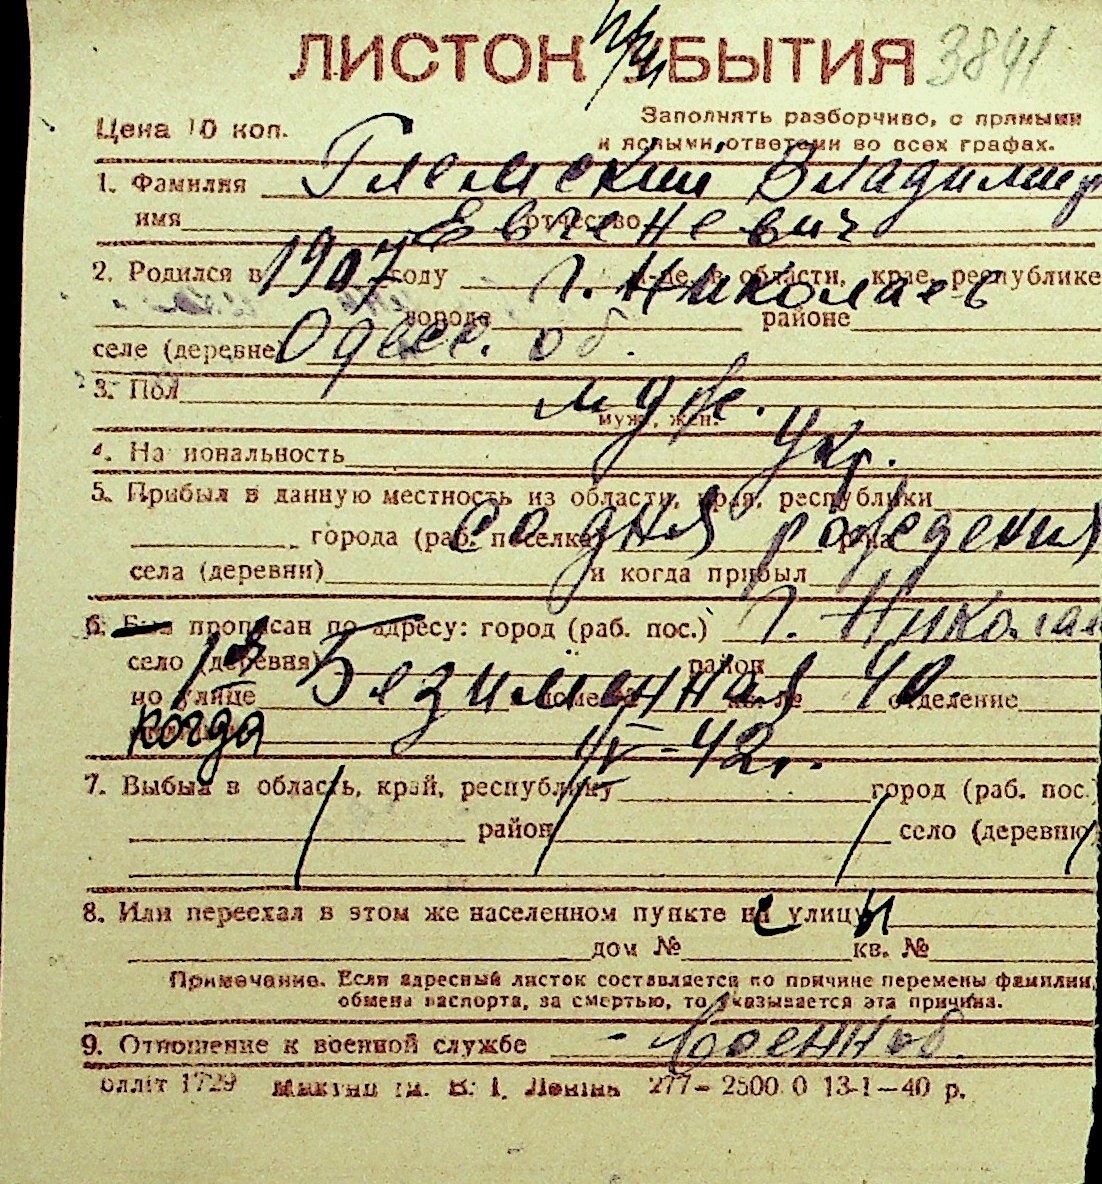 ЛИСТОК УБЫТИЯ 3841
Цена 10 коп.
Заполнять разборчиво, с прямыми
и ясными ответами во всех графах.
1. Фамилия Глемский Владимир
имя отчество Евгеневич
2. Родился в 1907 году г. Николаев м-це, в области, крае, республике
городе районе
селе (деревне Одесс. об.
3. Пол муж.
муж., жен.
4. Национальность укр.
5. Прибыл в данную местность из области, края, республики
города (раб. поселка) со дня рождения р-на
села (деревни) и когда прибыл
6. Был прописан по адресу: город (раб. пос.) г. Николаев
село (деревня) район
по улице 1я Безименная номер кв. № 40 отделение
когда IV-42 г.
7. Выбыл в область, край, республику город (раб. пос.)
район село (деревню)
8. Или переехал в этом же населенном пункте на улицу
дом № кв. №
Примечание. Если адресный листок составляется по причине перемены фамилии,
обмена паспорта, за смертью, то указывается эта причина.
9. Отношение к военной службе - военнооб.
Оллiт 1729 iм. В. I. Ленiна 277-2500.0 13-1-40 р.